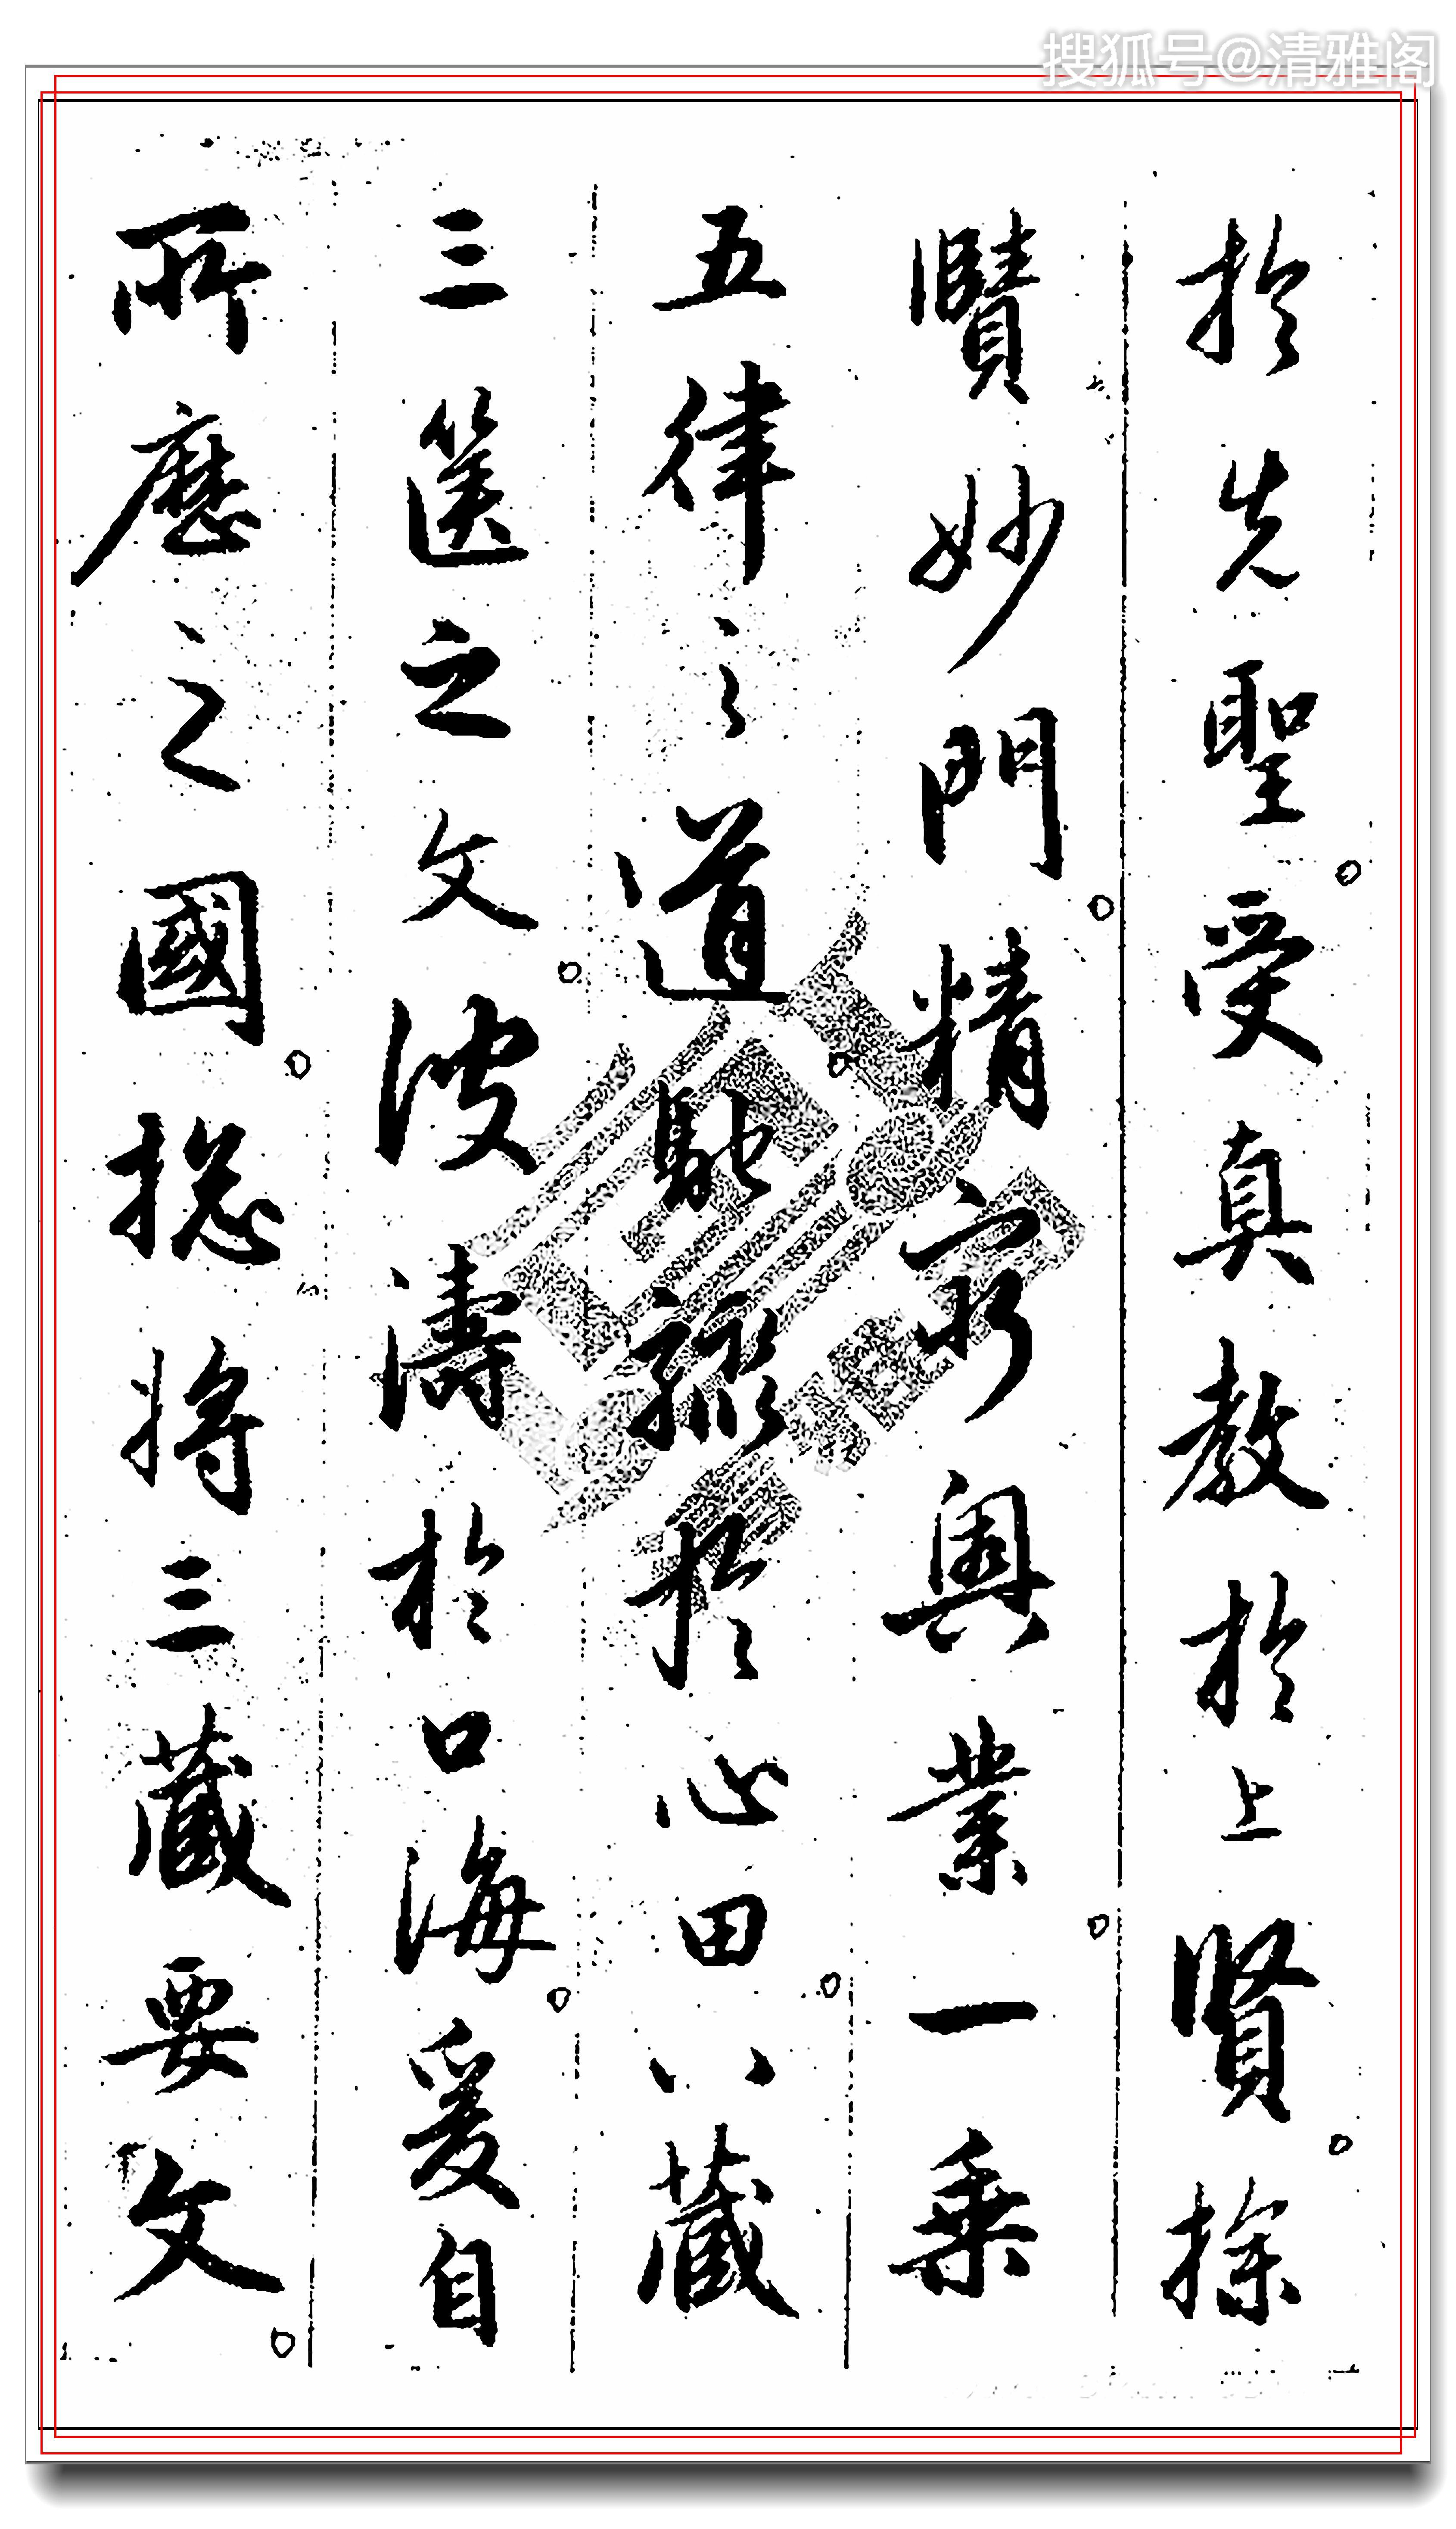 搜狐号@清雅阁
於先聖受真教於上賢探
賾妙門精窮奧業一乘
五律之道馳驟於心田八藏
三篋之文波濤於口海爰自
所歷之國捴將三藏要文